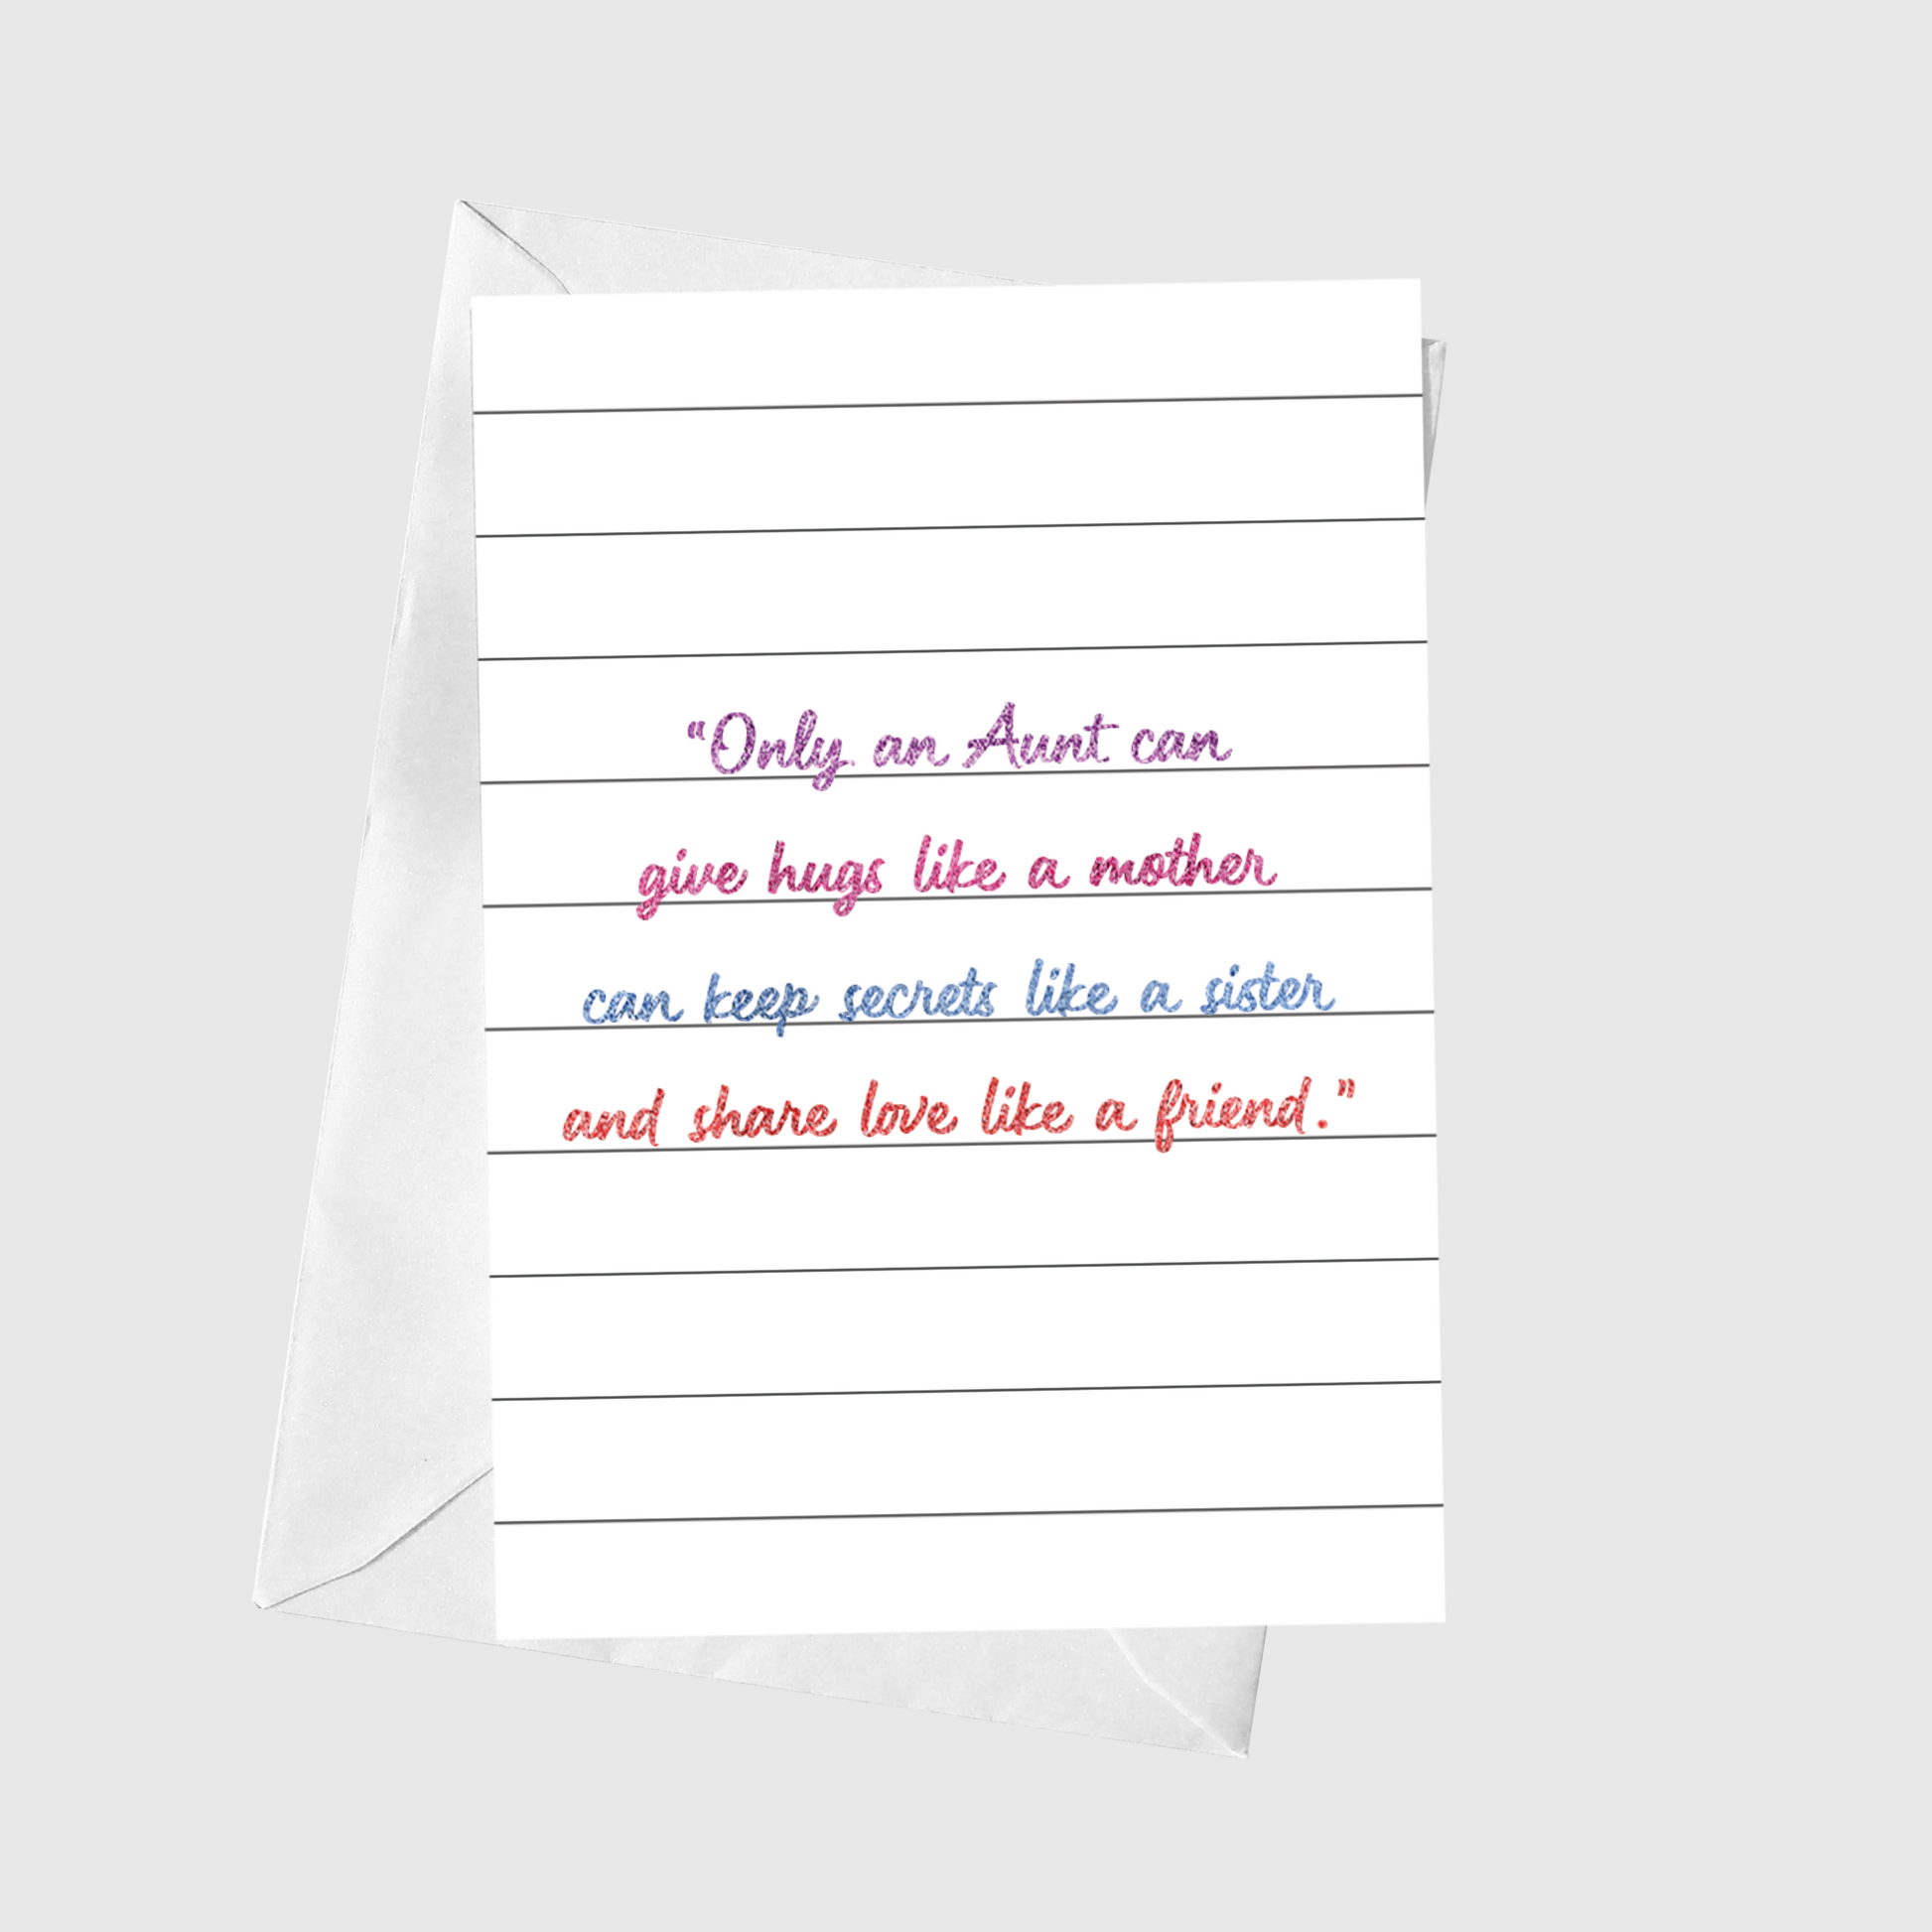 “Only an Aunt can
give hugs like a mother
can keep secrets like a sister
and share love like a friend.”